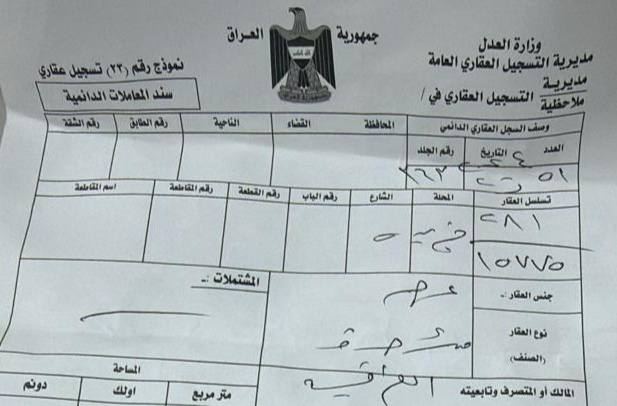 جمهورية العراق
وزارة العدل
مديرية التسجيل العقاري العامة
مديرية
ملاحظية
التسجيل العقاري في /
نموذج رقم (٢٣) تسجيل عقاري
سند المعاملات الدائمية
وصف السجل العقاري الدائمي
المحافظة
القضاء
الناحية
رقم الطابق
رقم الشقة
العدد
التاريخ
رقم الجلد
٥١
٣٦٣
تسلسل العقار
المحلة
الشارع
رقم الباب
رقم القطعة
رقم المقاطعة
اسم المقاطعة
٢٨١
١٥٧٧٥
جنس العقار :-
المشتملات :-
نوع العقار
(الصنف)
المالك أو المتصرف وتابعيته
العراقية
المساحة
متر مربع
اولك
دونم